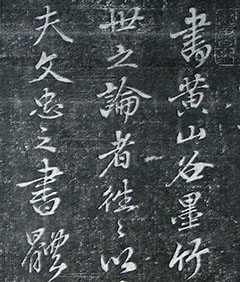 書黄山谷墨竹
世之論者往〻以
夫文忠之書體